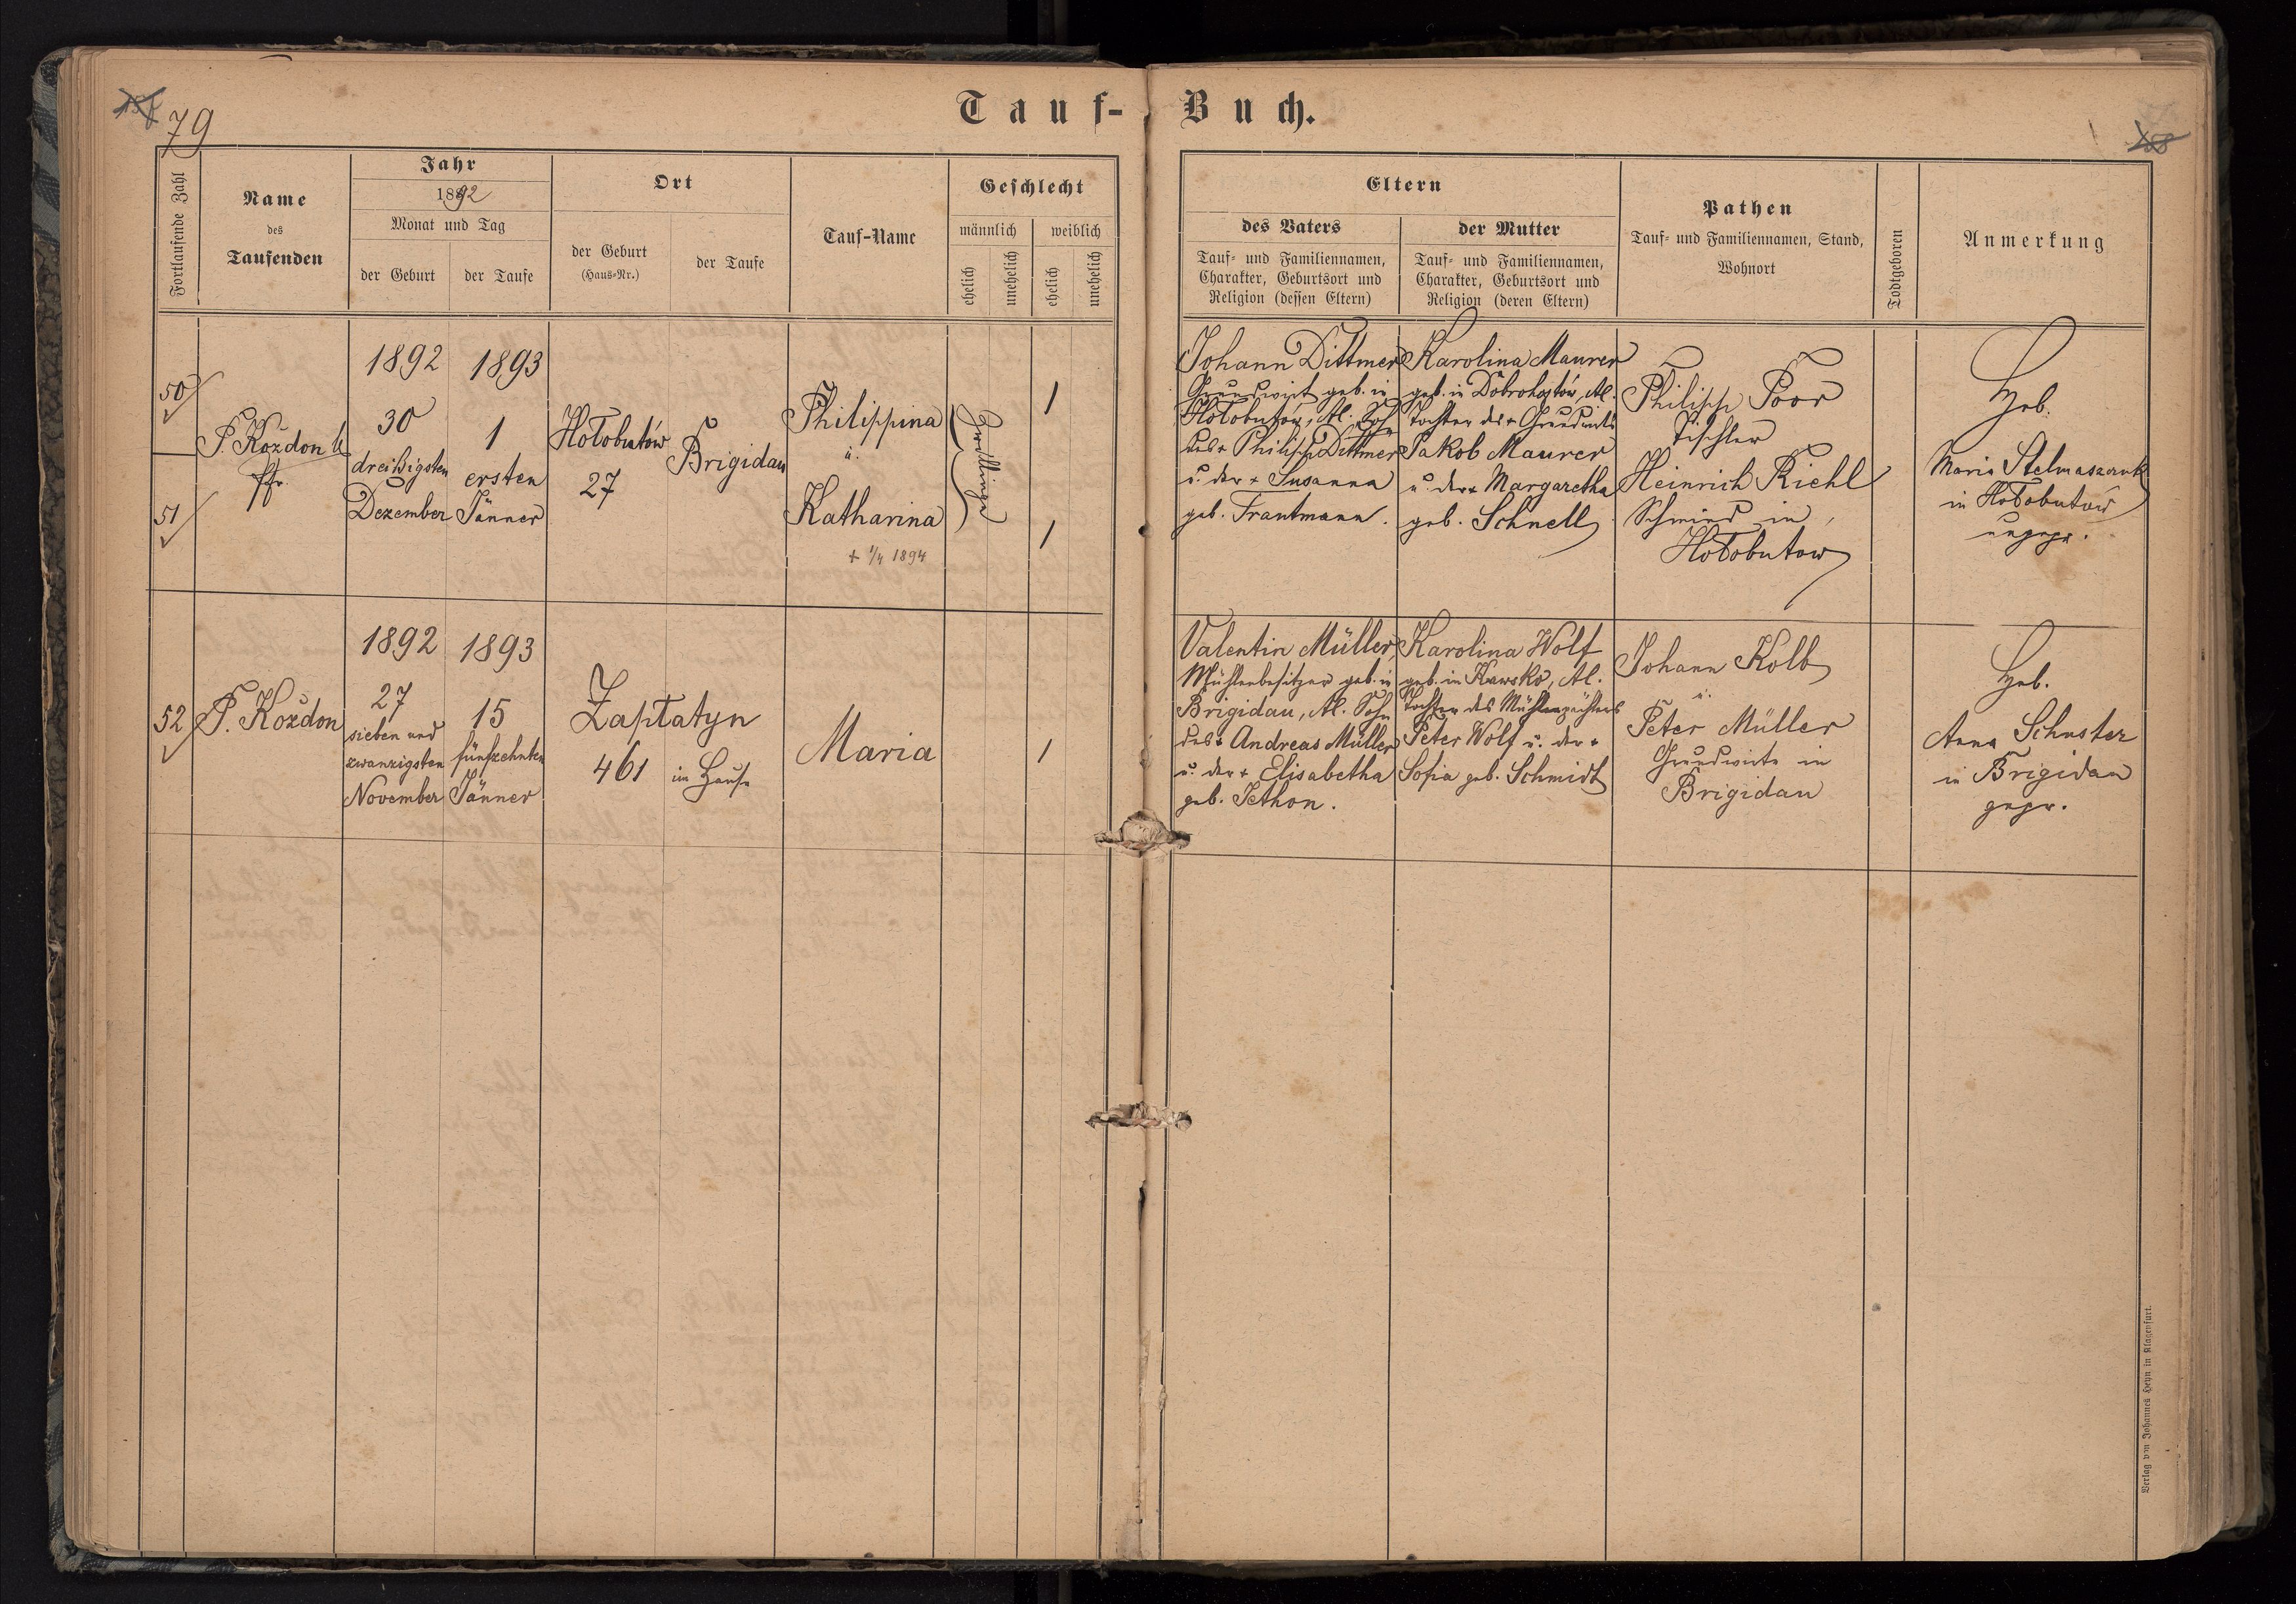 79
Tauf-Buch.
Fortlaufende Zahl
Name
des
Taufenden
Jahr
1892
Monat und Tag
der Geburt
der Taufe
Ort
der Geburt
(Haus-Nr.)
der Taufe
Tauf-Name
Geschlecht
männlich
weiblich
ehelich
unehelich
ehelich
unehelich
Eltern
des Vaters
Tauf- und Familiennamen,
Charakter, Geburtsort und
Religion (dessen Eltern)
der Mutter
Tauf- und Familiennamen,
Charakter, Geburtsort und
Religion (deren Eltern)
Pathen
Tauf- und Familiennamen, Stand,
Wohnort
Todtgeboren
Anmerkung
50
51
J. Kozdon
Pfr
1892
30
dreißigsten
Dezember
1893
1
ersten
Jänner
Hołobutów
27
Brigidau
Philippina
u.
Katharina
+ 1/4 1894
Zwillinge
1
1
Johann Dittmer
Grundwirt geb. in
Hołobutów, Al. Sohn
des + Philipp Dittmer
u. der + Susanna
geb. Trautmann.
Karolina Maurer
geb. in Dobrohostów, Al.
Tochter des + Grundwirts
Jakob Maurer
u. der + Margaretha
geb. Schnell
Philipp Poor
Tischler
Heinrich Riehl
Schmied in
Hołobutow
Heb.
Maria Stelmaszczuk
in Hołobutow
ungepr.
52
J. Kozdon
1892
27
sieben und
zwanzigsten
November
1893
15
fünfzehnten
Jänner
Zaptatyn
461
im Hause
Maria
1
Valentin Müller,
Mühlenbesitzer geb. in
Brigidau, Al. Sohn
des + Andreas Müller
u. der + Elisabetha
geb. Jethon.
Karolina Wolf
geb. in Kawsko, Al.
Tochter des Mühlenpächters
Peter Wolf u. der +
Sofia geb. Schmidt
Johann Kolb
u.
Peter Müller
Grundwirte in
Brigidau
Heb.
Anna Schuster
in Brigidau
gepr.
Verlag von Johannes Heyn in Klagenfurt.